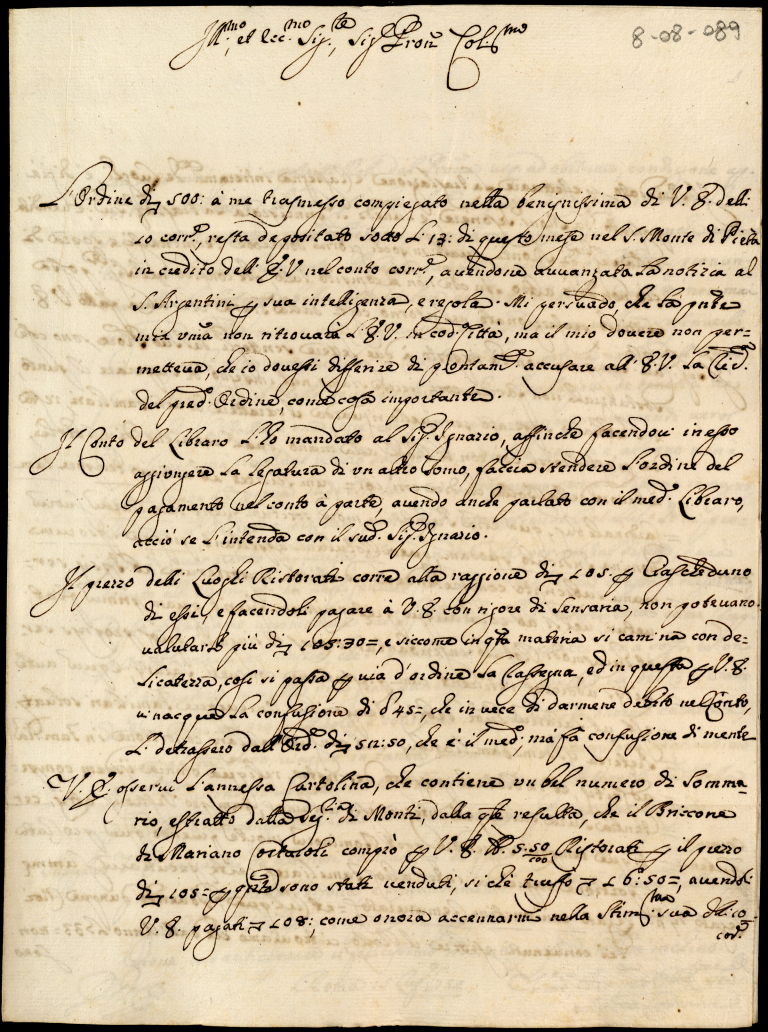 8-08-089
Ill.mo, et Ecc.mo Sig.re, Sig.r Pron Col.mo
L'Ordine di 500: à me trasmesso compiegato nella benignissima di V. E. delli
10 corr.e, resta depositato sotto li 13: di questo mese nel S. Monte di Pietà
in credito dell' E. V nel conto corr.e, avendone avvanzata la notizia al
S. Argentini p sua intelligenza, e regola. Mi persuado, che la pnte
mia non ritrovarà l'E. V. in cod. Città, ma il mio dovere non per=
metteva, che io dovessi differire di accusare all' E. V. la
del pred. Ordine, come cosa importante.
Il Conto del Libraro l'ho mandato al Sig. Ignazio, affinche facendovi in esso
aggiongere la legatura di un altro tomo, faccia stendere l'ordine del
pagamento nel conto à parte, avendo anche parlato con il med. Libraro,
acciò se l'intenda con il sud. Sig. Ignazio.
Il prezzo delli Luoghi Ristorati corre alla raggione di 105. p Ciascheduno
di essi, e facendoli pagare à V. E. con rigore di Sensaria, non potevano
valutarli più di 105:30=, e siccome in qta materia si camina con de=
licatezza, così si passa p via d'ordine la Rassegna, ed in questa p V. E.
nacque la confusione di 45=, che in vece di darmene debito nel Conto,
li detrassero dall' Ord. di 511:50, che è il med., mà fà confusione di mente
V. E. osservi l'annessa Cartolina, che contiene un bel numero di Somma=
rio, estratto dalla Seg.ria di Monti, dalla qle resulta, che il Briccone
di Mariano comprò p V. E. 5. 50/100 Ristorati p il prezzo
di 105= p sono stati venduti, si che truffò 16:50=, avendoli
V. E. pagati 108: come onora accennarmi nella Stim.ma sua delli 10
corr.e